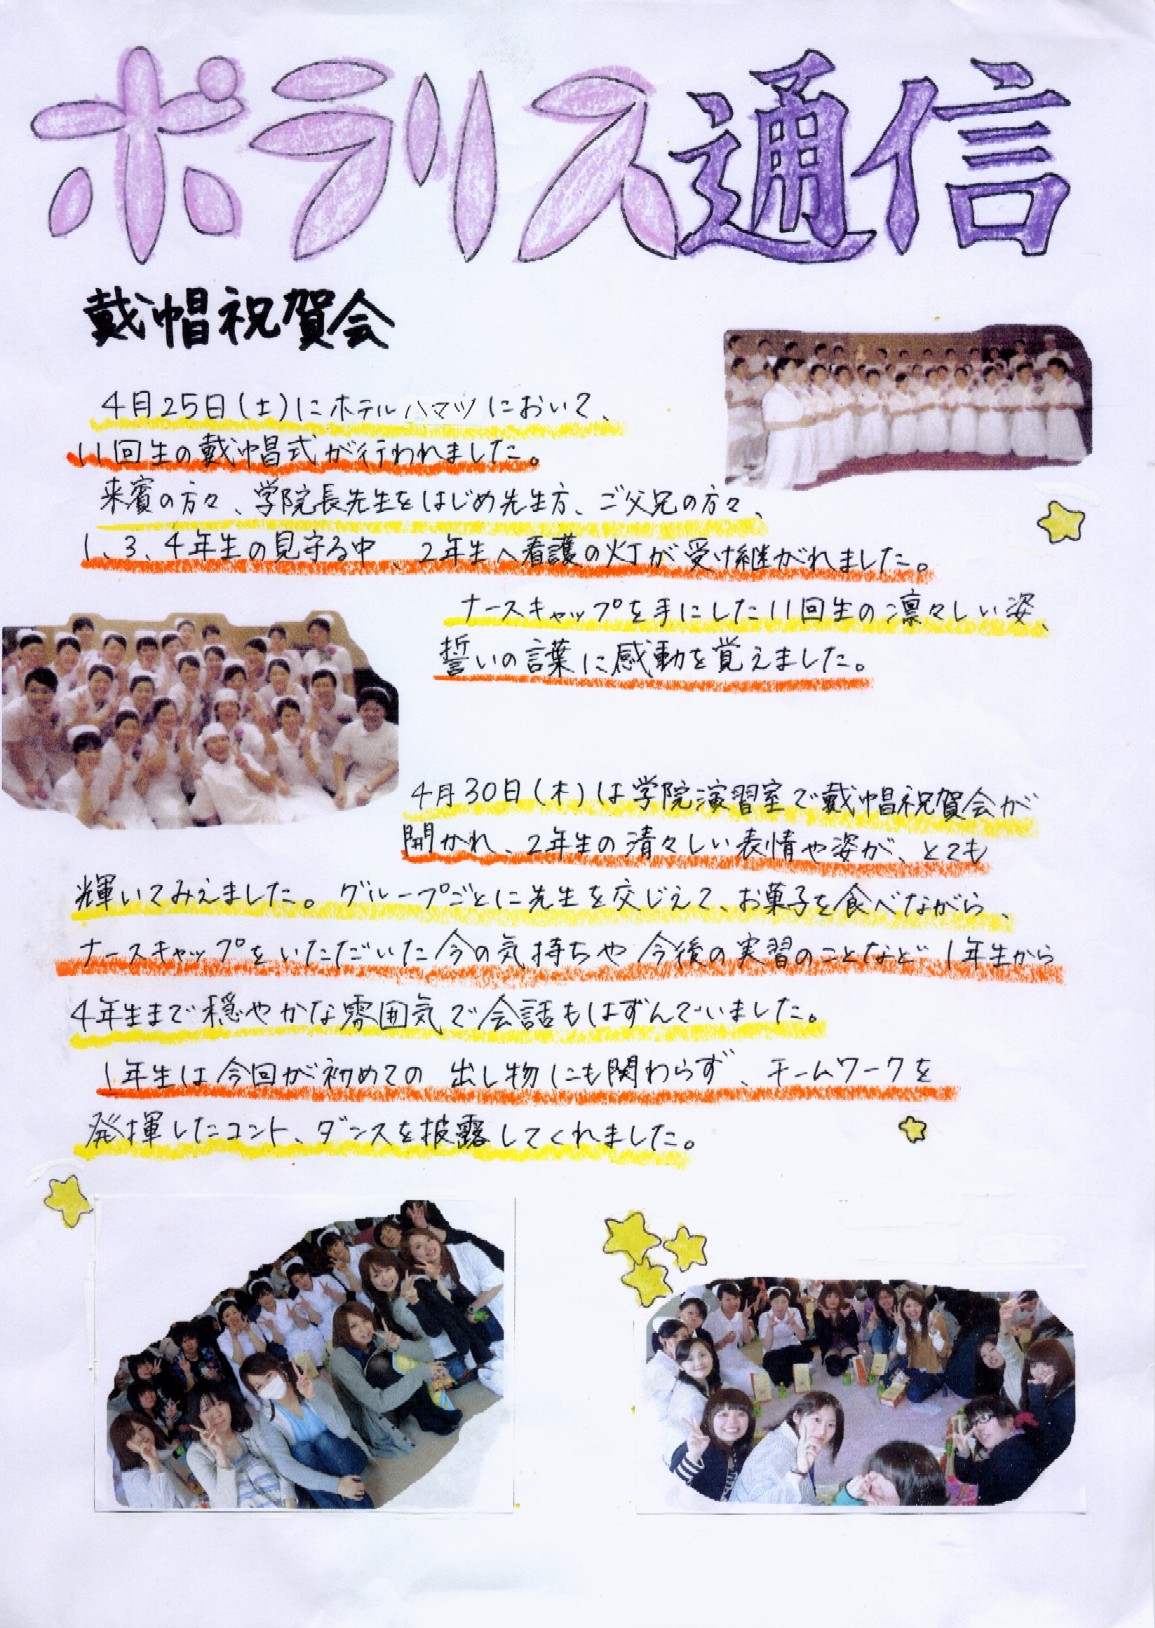 ポラリス通信
戴帽祝賀会
4月25日(土)にホテルハマツにおいて、
11回生の戴帽式が行われました。
来賓の方々、学院長先生をはじめ先生方、ご父兄の方々、
1、3、4年生の見守る中、2年生へ看護の灯が受け継がれました。
ナースキャップを手にした11回生の凛々しい姿、
誓いの言葉に感動を覚えました。
4月30日(木)は学院演習室で戴帽祝賀会が
開かれ、2年生の清々しい表情や姿が、とても
輝いてみえました。グループごとに先生を交じえて、お菓子を食べながら、
ナースキャップをいただいた今の気持ちや今後の実習のことなど1年生から
4年生まで穏やかな雰囲気で会話もはずんでいました。
1年生は今回が初めての出し物にも関わらず、チームワークを
発揮したコント、ダンスを披露してくれました。